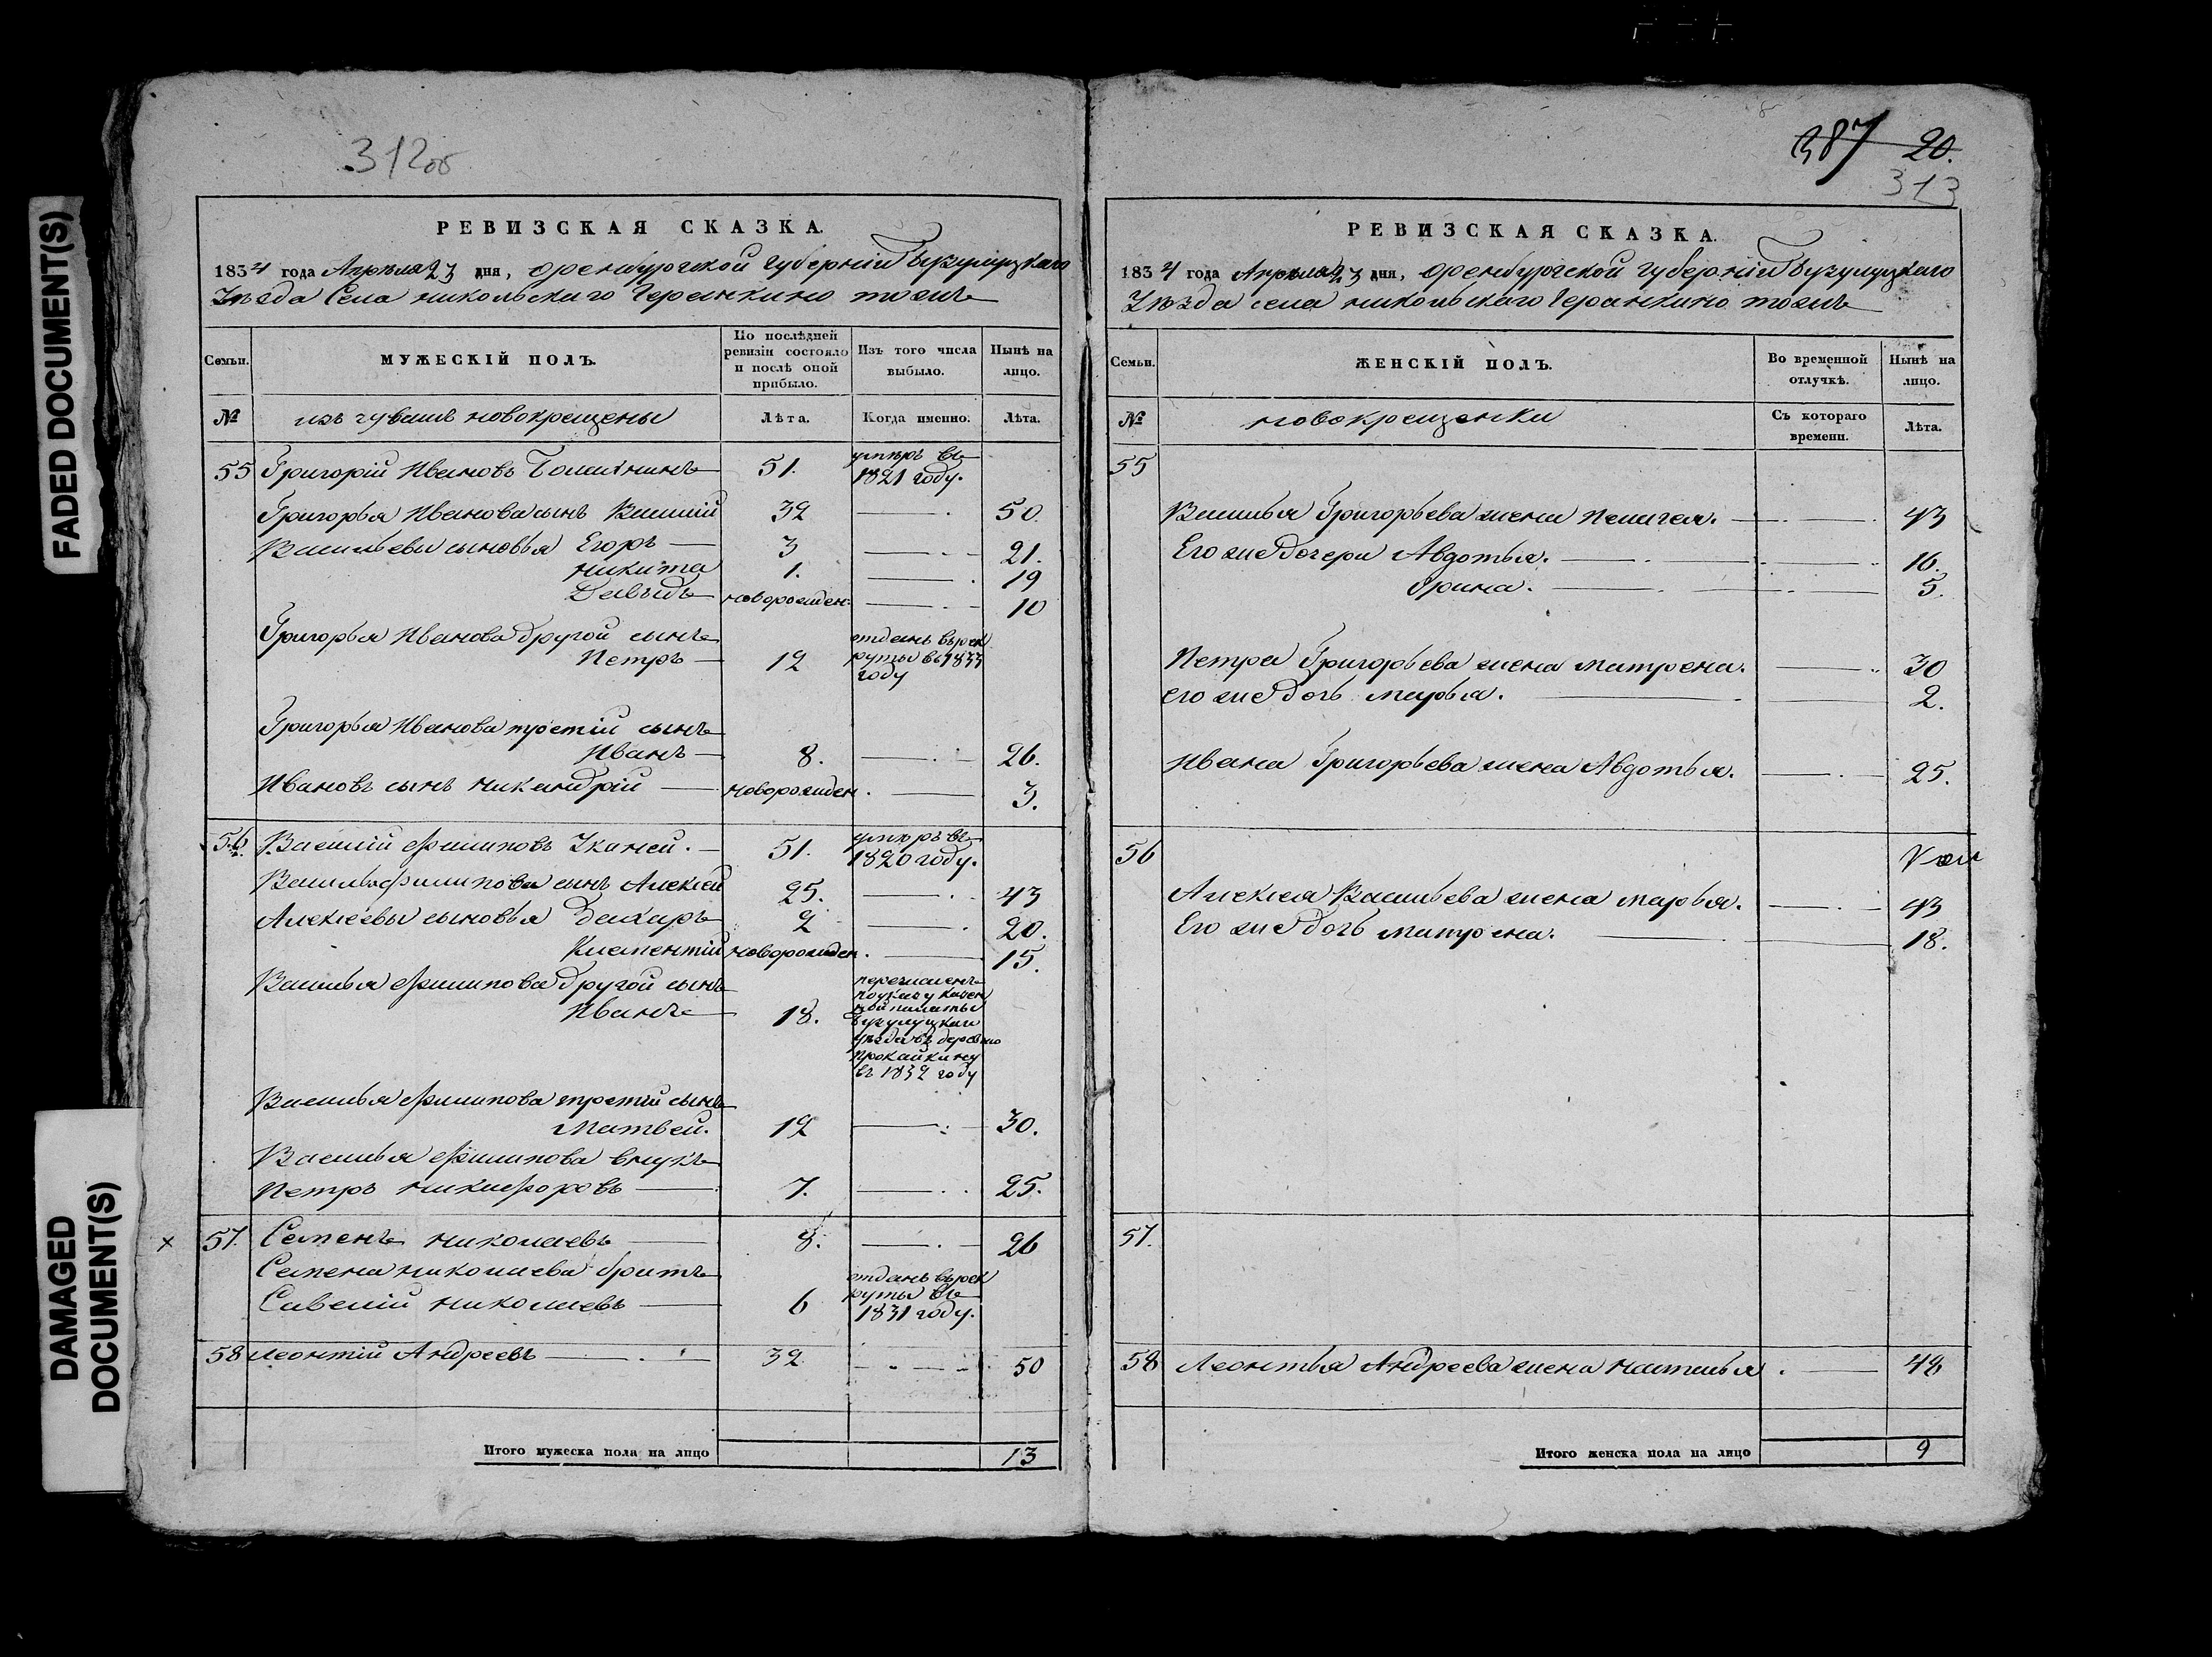 FADED DOCUMENT(S)
DAMAGED
DOCUMENT(S)
312об
РЕВИЗСКАЯ СКАЗКА.
1834 года Апреля 23 дня, Оренбургской губерніи Бузулуцкаго
Уезда Села никольскаго Геранкино тожъ
Семьи.
МУЖЕСКІЙ ПОЛЪ.
По послѣдней ревизіи состояло и послѣ оной прибыло.
Изъ того числа выбыло.
Нынѣ на лицо.
№ изъ чувашъ новокрещены Лѣта. Когда именно. Лѣта.
55 Григорій Ивановъ 51. умѣръ въ 1821 году.
Григорья Иванова сынъ Василій 32 50.
Васильевы сыновья Егоръ 3 21.
Никита 1. 19
Давыдъ новорожден. 10
Григорья Иванова другой сынъ
Петръ 12 отданъ въ рекруты въ 1833 году
Григорья Иванова третій сынъ
Иванъ 8. 26.
Ивановъ сынъ Никандрій новорожден. 3.
56 Василій Филиповъ Уканей. 51. умѣръ въ 1820 году.
Василья Филипова сынъ Алексей 25. 43
Алексеевы сыновья Захаръ 2 20.
Клементій новорожден. 15.
Василья Филипова другой сынъ
Иванъ 18. перечисленъ по указу казенной палаты Бузулуцкаго уезда въ деревню Прокайкину въ 1832 году
Василья Филипова третій сынъ
Матвей. 12 30.
Василья Филипова внукъ
Петръ Никифоровъ 7. 25.
х 57. Семенъ Николаевъ 8. 26
Семена Николаева братъ
Савелій Николаевъ 6 отданъ въ рекруты въ 1831 году.
58 Леонтій Андреевъ 32 50
Итого мужеска пола на лицо 13
387 20.
313
РЕВИЗСКАЯ СКАЗКА.
1834 года Апреля 23 дня, Оренбургской губерніи Бузулуцкаго
Уезда села никольскаго Геранкино тожъ
Семьи.
ЖЕНСКІЙ ПОЛЪ.
Во временной отлучкѣ.
Нынѣ на лицо.
№ новокрещенки Съ котораго времени. Лѣта.
55
Василья Григорьева жена Пелагея. 43
Его же дочери Авдотья. 16.
Орина. 5.
Петра Григорьева жена Матрена. 30
его же дочь Марья. 2.
Ивана Григорьева жена Авдотья. 25.
56
Алексея Васильева жена Марья. 43
Его же дочь Матрена. 18.
57.
58 Леонтья Андреева жена Наталья 48
Итого женска пола на лицо 9